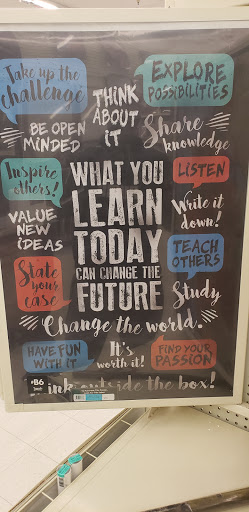 Take up the
challenge
THINK
ABOUT
IT
EXPLORE
POSSIBILITIES
BE OPEN
MINDED
Share
knowledge
Inspire
others!
WHAT YOU
LEARN
TODAY
CAN CHANGE THE
FUTURE
LISTEN
VALUE
NEW
IDEAS
Write it
down!
TEACH
OTHERS
State
your
case
Study
Change the world.
HAVE FUN
WITH IT
It's
worth it!
FIND YOUR
PASSION
B6
ink outside the box!